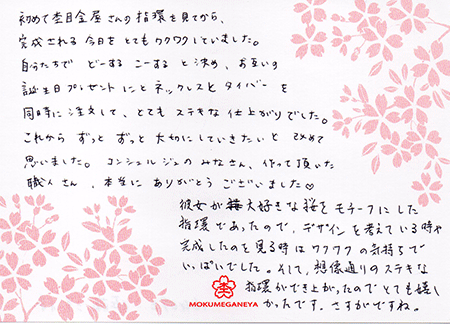 初めて杢目金屋さんの指環を見てから、
完成される今日をとてもワクワクしていました。
自分たちで どーする こーする と決め、お互いの
誕生日プレゼントにとネックレスとタイバーを
同時に注文して、とてもステキな仕上がりでした。
これから ずっと ずっと 大切にしていきたいと 改めて
思いました。コンシェルジュのみなさん、作って頂いた
職人さん、本当に ありがとう ございました♡
彼女が大好きな桜をモチーフにした
指環であったので、デザインを考えている時や
完成したのを見る時はワクワクの気持ちで
いっぱいでした。そして、想像通りのステキな
指環ができ上がったのでとても嬉し
かったです。さすがですね。
MOKUMEGANEYA